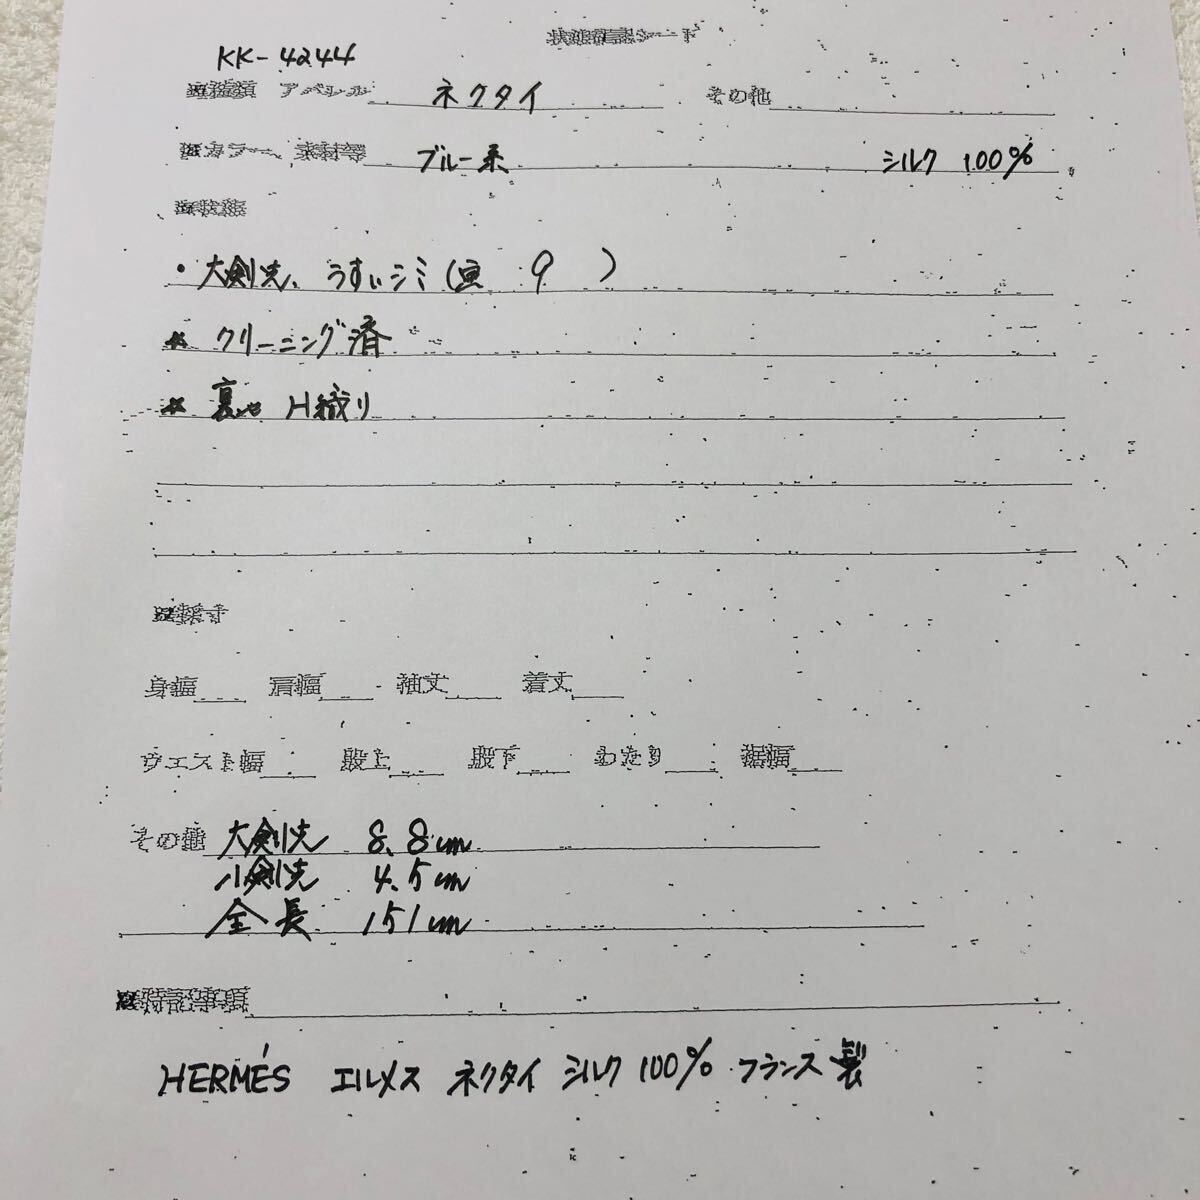 状態確認シート
KK-4244
■種類 アパレル ネクタイ その他
■カラー、素材等 ブルー系 シルク 100%
■状態
・大剣先、うすいシミ(画 9 )
★ クリーニング済
★ 裏地 H織り
■採寸
身幅 肩幅 袖丈 着丈
ウエスト幅 股上 股下 わたり 裾幅
その他 大剣先 8.8cm
小剣先 4.5cm
全長 151cm
■特記事項
HERMÉS エルメス ネクタイ シルク 100% フランス製